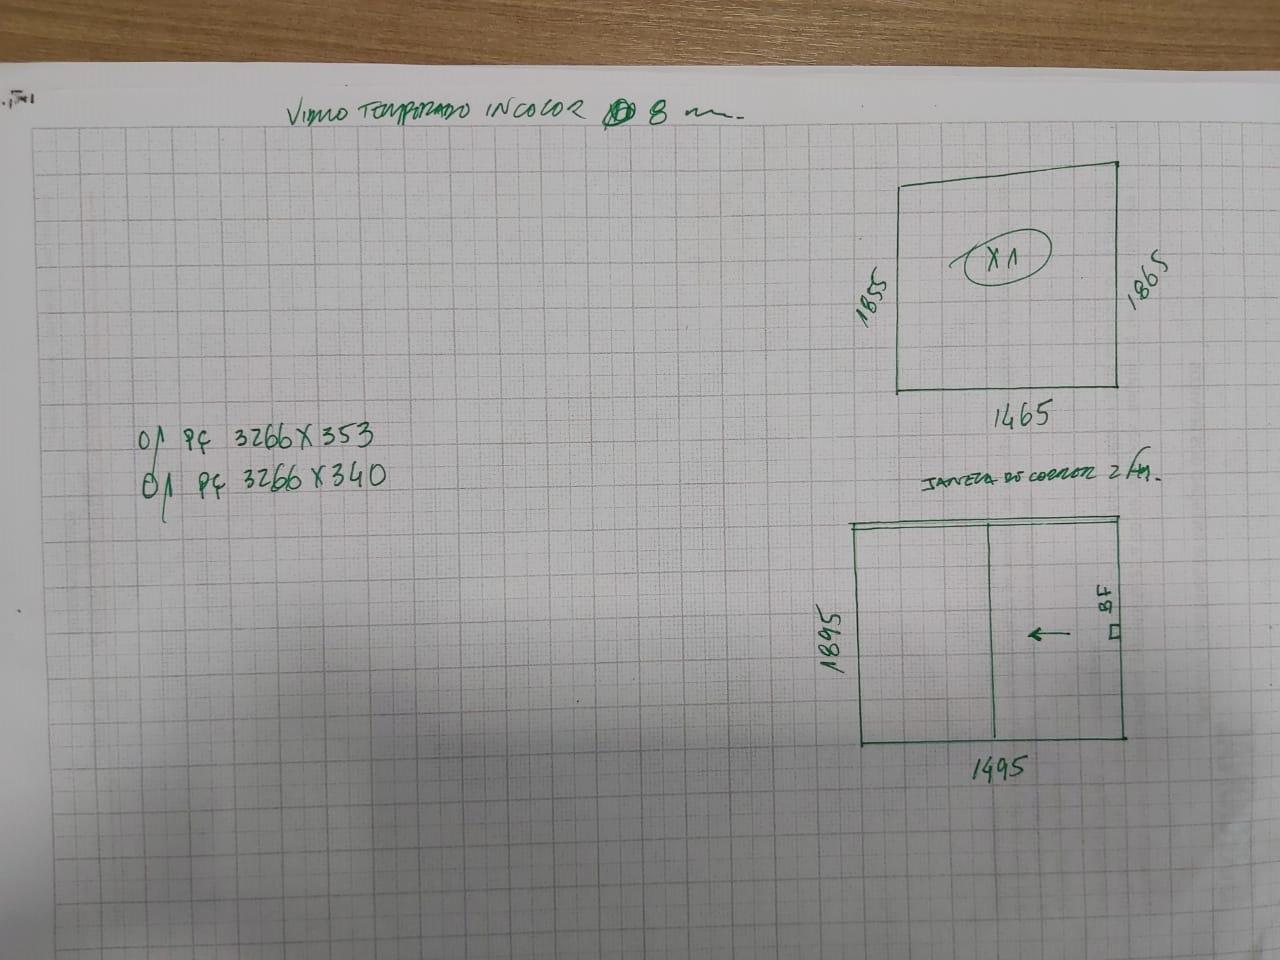 VIDRO TEMPERADO INCOLOR 8 mm.
X1
1855
1865
1465
01 PÇ 3266X353
01 PÇ 3266X340
JANELA DE CORRER 2
BF
1895
1495